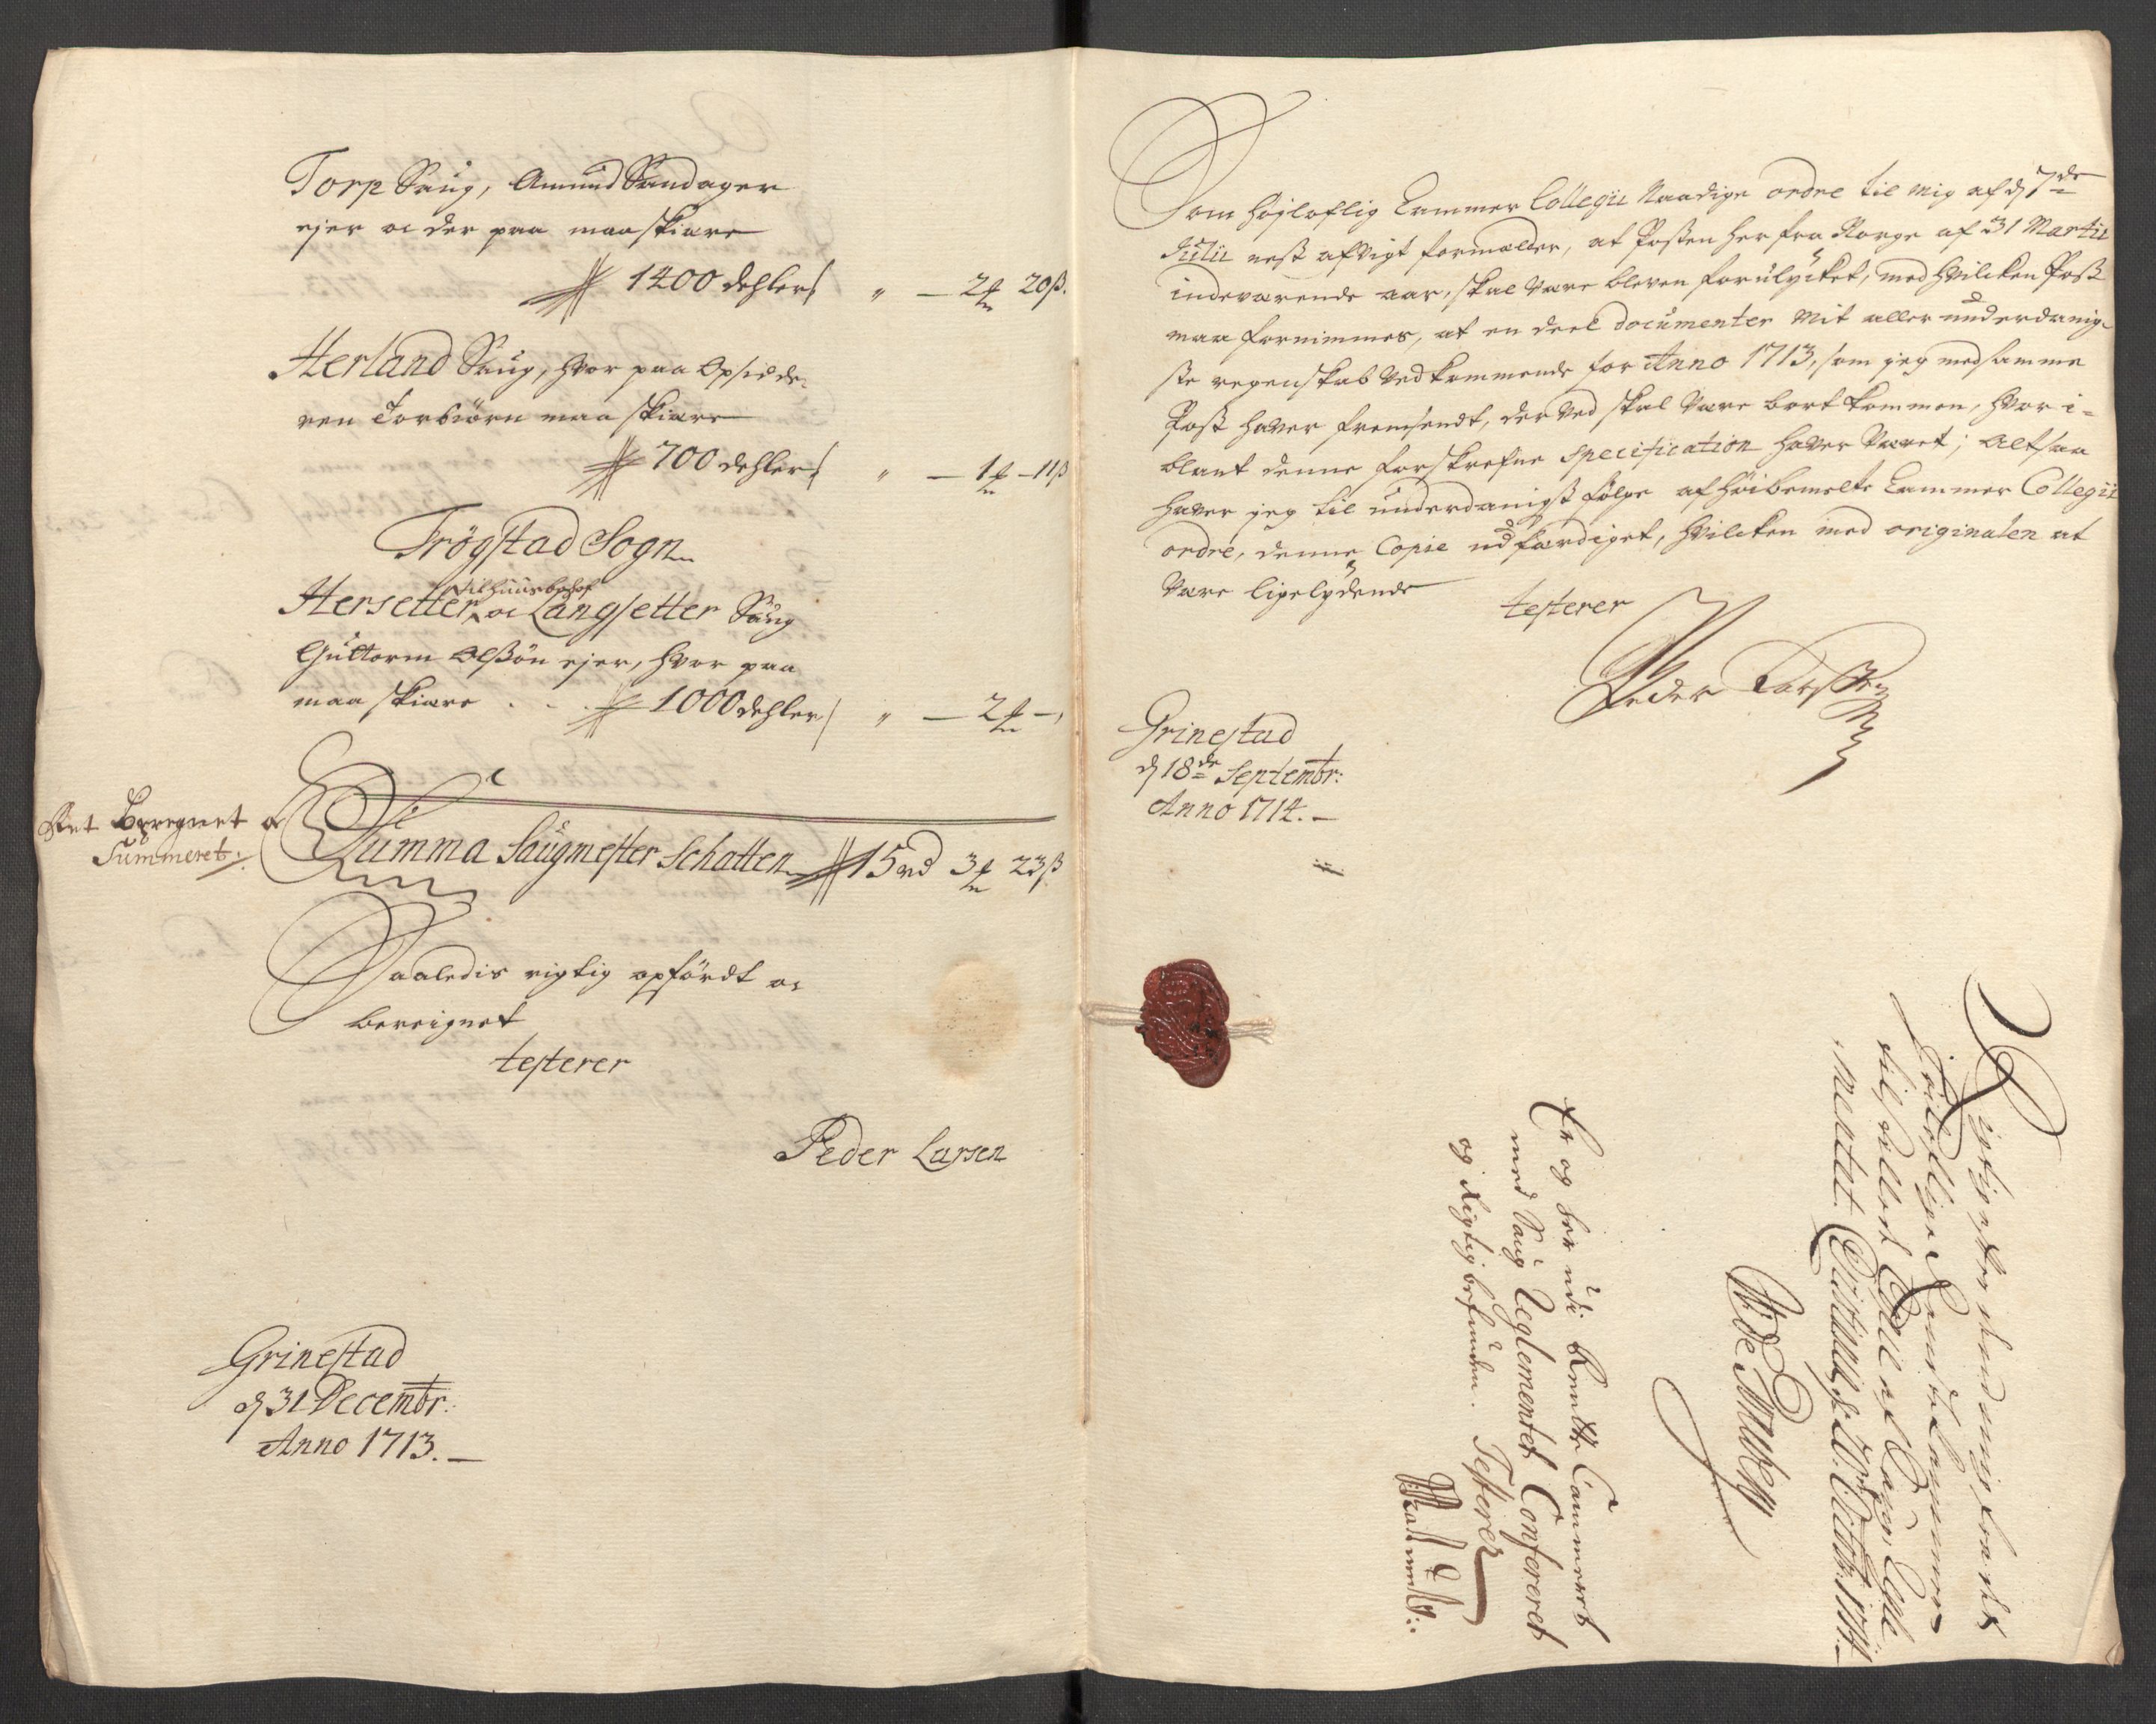 Torp Saug, Amund Sandager
ejer oc der paa maa skiære
1400 dehler " — 2 20 ß.
Herland Saug, hvor paa Opsidde-
ren Torbiörn maa skiære
700 dehler " — 1 — 11 ß
Trögstad Sogn
til huusbehof
Hersetter, oc Langsetter Saug
Guttorm Olßön ejer, hvor paa
maa skiære . . . 1000 dehler " — 2 —
Ret Beregnet oc
Summeret.
Summa Saugmester Schatten 15 rd 3 23 ß
Saaledis rigtig opfördt oc
bereignet
testerer
Peder Larsen
Grinestad
d 31 Decembr:
Anno 1713. —
Som højloflig Cammer Collegii Naadige ordre til mig af d 7de
Julii nest afvigt formælder, at Posten her fra Norge af 31 Martii
indeværende aar, skal være bleven forulycket, med hvilcken Post
maa fornimmes, at en deel documenter mit aller underdanig-
ste regenskab vedkommende for Anno 1713, som jeg med samme
Post haver fremsendt, der ved skal være bort kommen, hvor i-
blant denne forskrefne specification haver været; altsaa
haver jeg til underdanigst fölge af höibemelte Cammer Collegii
ordre, denne Copie udfærdiget, hvilcken med originalen at
være ligelydende
testerer
Peder Larssen
Grinestad
d 18de Septembr:
Anno 1714. —
Er og her udi Rente Cammeret
med Saug Reglementet Confereret
og Rigtig befunden. Testerer